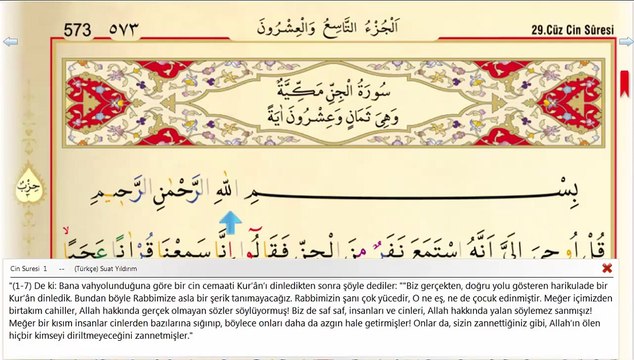 573 ٥٧٣ اَلْجُزْءُ التَّاسِعُ وَالْعِشْرُونَ 29.Cüz Cin Sûresi
سُورَةُ الْجِنِّ مَكِّيَّةٌ
وَهِىَ ثَمَانٍ وَعِشْرُونَ اٰيَةً
حِزْبٌ
بِسْمِ اللّٰهِ الرَّحْمٰنِ الرَّحٖيمِ
قُلْ اُوحِىَ اِلَىَّ اَنَّهُ اسْتَمَعَ نَفَرٌ مِنَ الْجِنِّ فَقَالُٓوا اِنَّا سَمِعْنَا قُرْاٰنًا عَجَبًا
Cin Suresi 1 -- (Türkçe) Suat Yıldırım
"(1-7) De ki: Bana vahyolunduğuna göre bir cin cemaati Kur'ân'ı dinledikten sonra şöyle dediler: ""Biz gerçekten, doğru yolu gösteren harikulade bir
Kur'ân dinledik. Bundan böyle Rabbimize asla bir şerik tanımayacağız. Rabbimizin şanı çok yücedir, O ne eş, ne de çocuk edinmiştir. Meğer içimizden
birtakım cahiller, Allah hakkında gerçek olmayan sözler söylüyormuş! Biz de saf saf, insanları ve cinleri, Allah hakkında yalan söylemez sanmışız!
Meğer bir kısım insanlar cinlerden bazılarına sığınıp, böylece onları daha da azgın hale getirmişler! Onlar da, sizin zannettiğiniz gibi, Allah'ın ölen
hiçbir kimseyi diriltmeyeceğini zannetmişler."